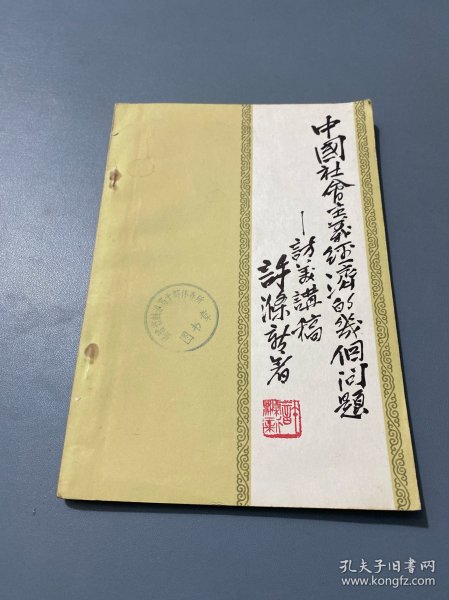 中國社會主義經濟的幾個問題
—訪美講稿
許滌新著
图书室
孔夫子旧书网
www.kongfz.com